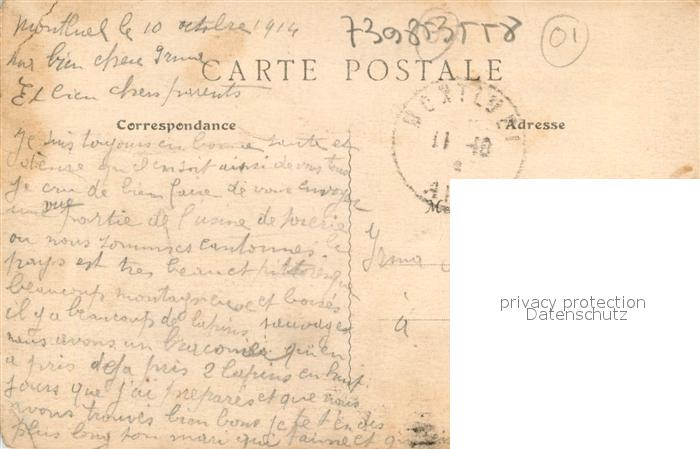 Montluel le 10 octobre 1914
739853558
01
ma bien chere Irma
CARTE POSTALE
Et bien chers parents
MONTLUEL
11 10
Correspondance
Adresse
Je suis toujours en bonne sante et
qu'il en soit ainsi de vous tous
Je crois de bien faire de vous envoyer
une vue partie de l'usine de soierie
ou nous sommes cantonnés le
pays est tres beau et pittoresque
beaucoup montagneux et boisés
il y a beaucoup de lapins sauvages
nous avons un braconnier qui en
a pris deja pris 2 lapins en huit
jours que j'ai preparés et que nous
avons trouvés bien bons je te t'en dis
plus long ton mari qui t'aime et qui
Irma
à
privacy protection
Datenschutz